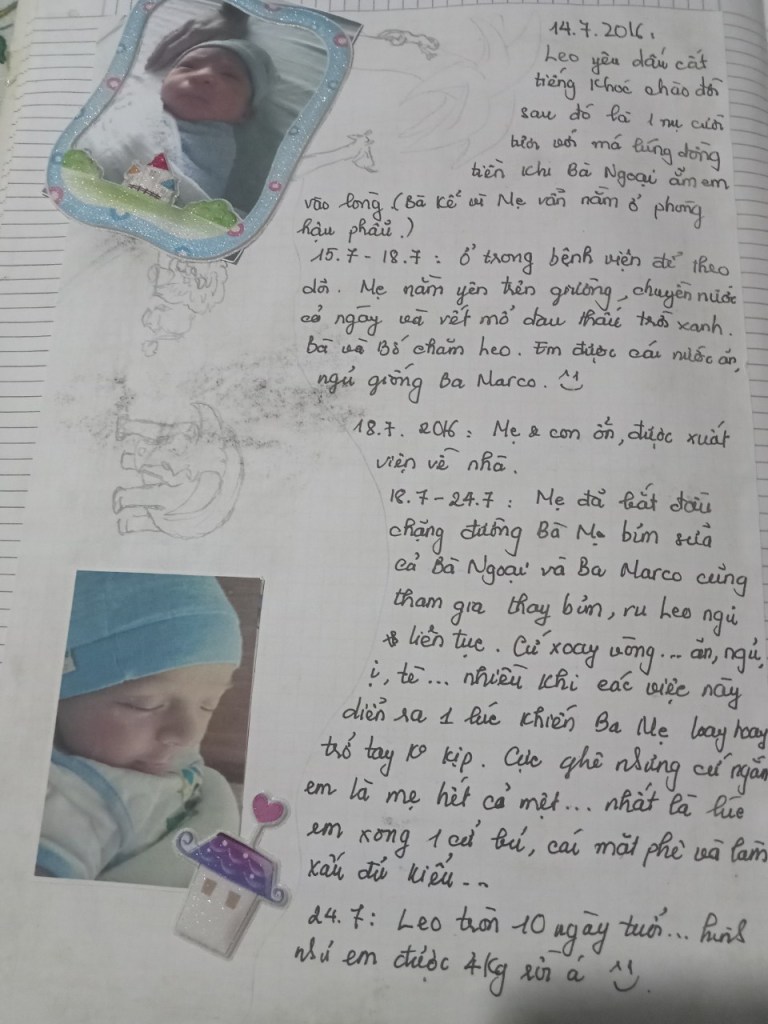 14.7.2016.
Leo yêu dấu cất
tiếng khóc chào đời
sau đó là 1 nụ cười
với má lúng đồng
tiền khi Bà Ngoại ẵm em
vào lòng (Bà kể vì Mẹ vẫn nằm ở phòng
hậu phẫu.)
15.7 - 18.7 : ở trong bệnh viện để theo
dõi. Mẹ nằm yên trên giường, chuyền nước
cả ngày và vết mổ đau thấu trời xanh.
Bà và Bố chăm Leo. Em được cái nước ăn,
ngủ giống Ba Marco. ^^
18.7. 2016 : Mẹ & con ổn, được xuất
viện về nhà.
18.7 - 24.7 : Mẹ đã bắt đầu
chặng đường Bà Mẹ bỉm sữa
cả Bà Ngoại và Ba Marco cũng
tham gia thay bỉm, ru Leo ngủ
liên tục. Cứ xoay vòng... ăn, ngủ,
ị, tè... nhiều khi các việc này
diễn ra 1 lúc khiến Ba Mẹ loay hoay
trở tay ko kịp. Cực ghê nhưng cứ ngắm
em là mẹ hết cả mệt... nhất là lúc
em xong 1 cử bú, cái mặt phê và làm
xấu đủ kiểu...
24.7 : Leo tròn 10 ngày tuổi... hình
như em được 4Kg rồi á ^^.